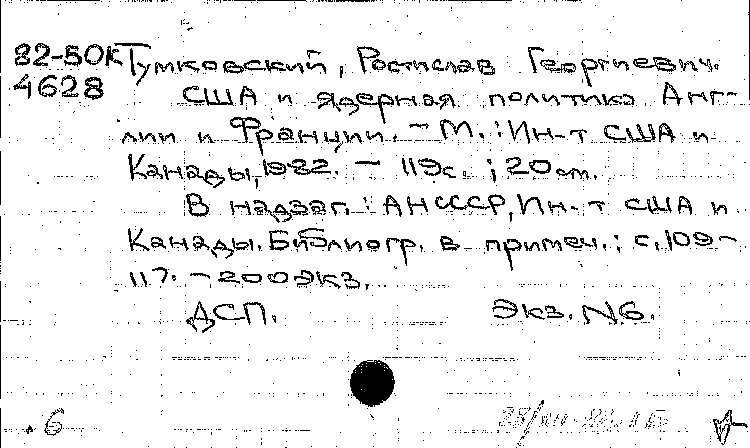 82-5OK Тумковский, Ростислав Георгиевич.
4628 США и ядерная политика Анг-
лии и Франции. - М. : Ин-т США и
Канады, 1982. - 119с. ; 20см.
В надзаг. : АН СССР, Ин-т США и
Канады. Библиогр. в примеч. : с. 109-
117. - 200экз.
ДСП. Экз. N6.
6